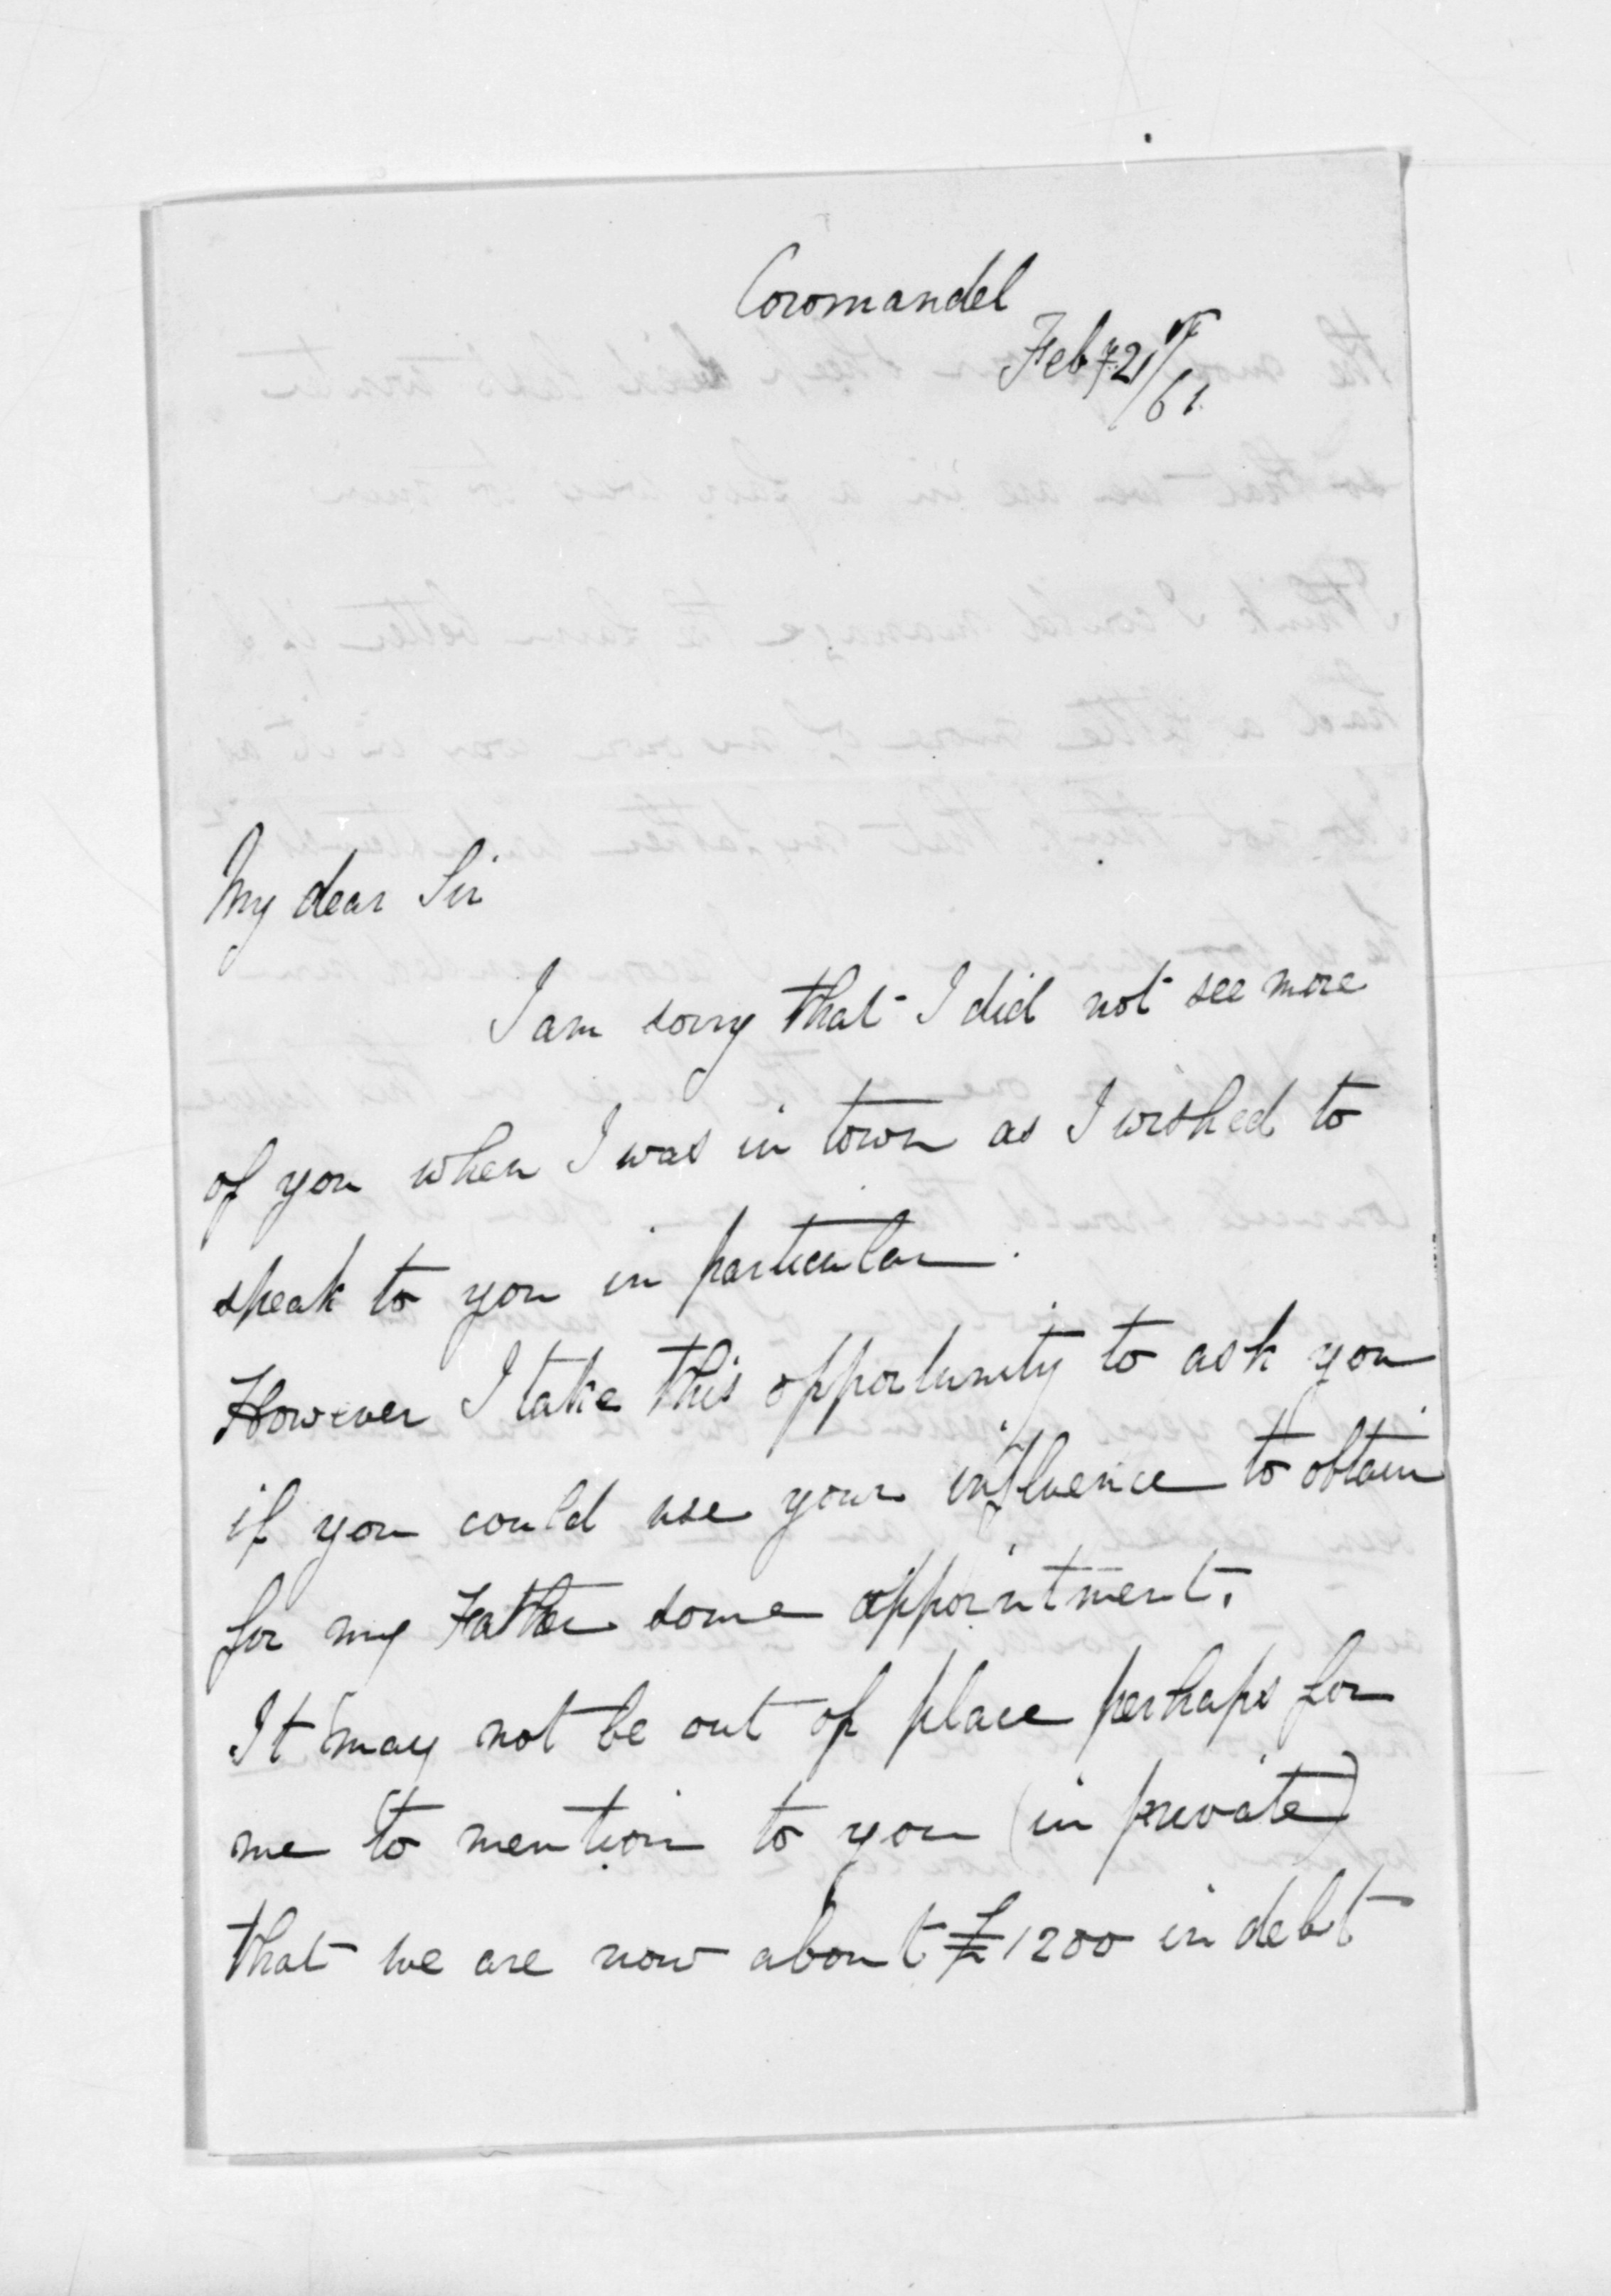 Coromandel
Feby 21st/61.
My dear Sir
I am sorry that I did not see more
of you when I was in town as I wished to
speak to you in particular.
However I take this opportunity to ask you
if you could use your influence to obtain
for my Father some appointment.
It may not be out of place perhaps for
me to mention to you (in private)
that we are now about £1200 in debt